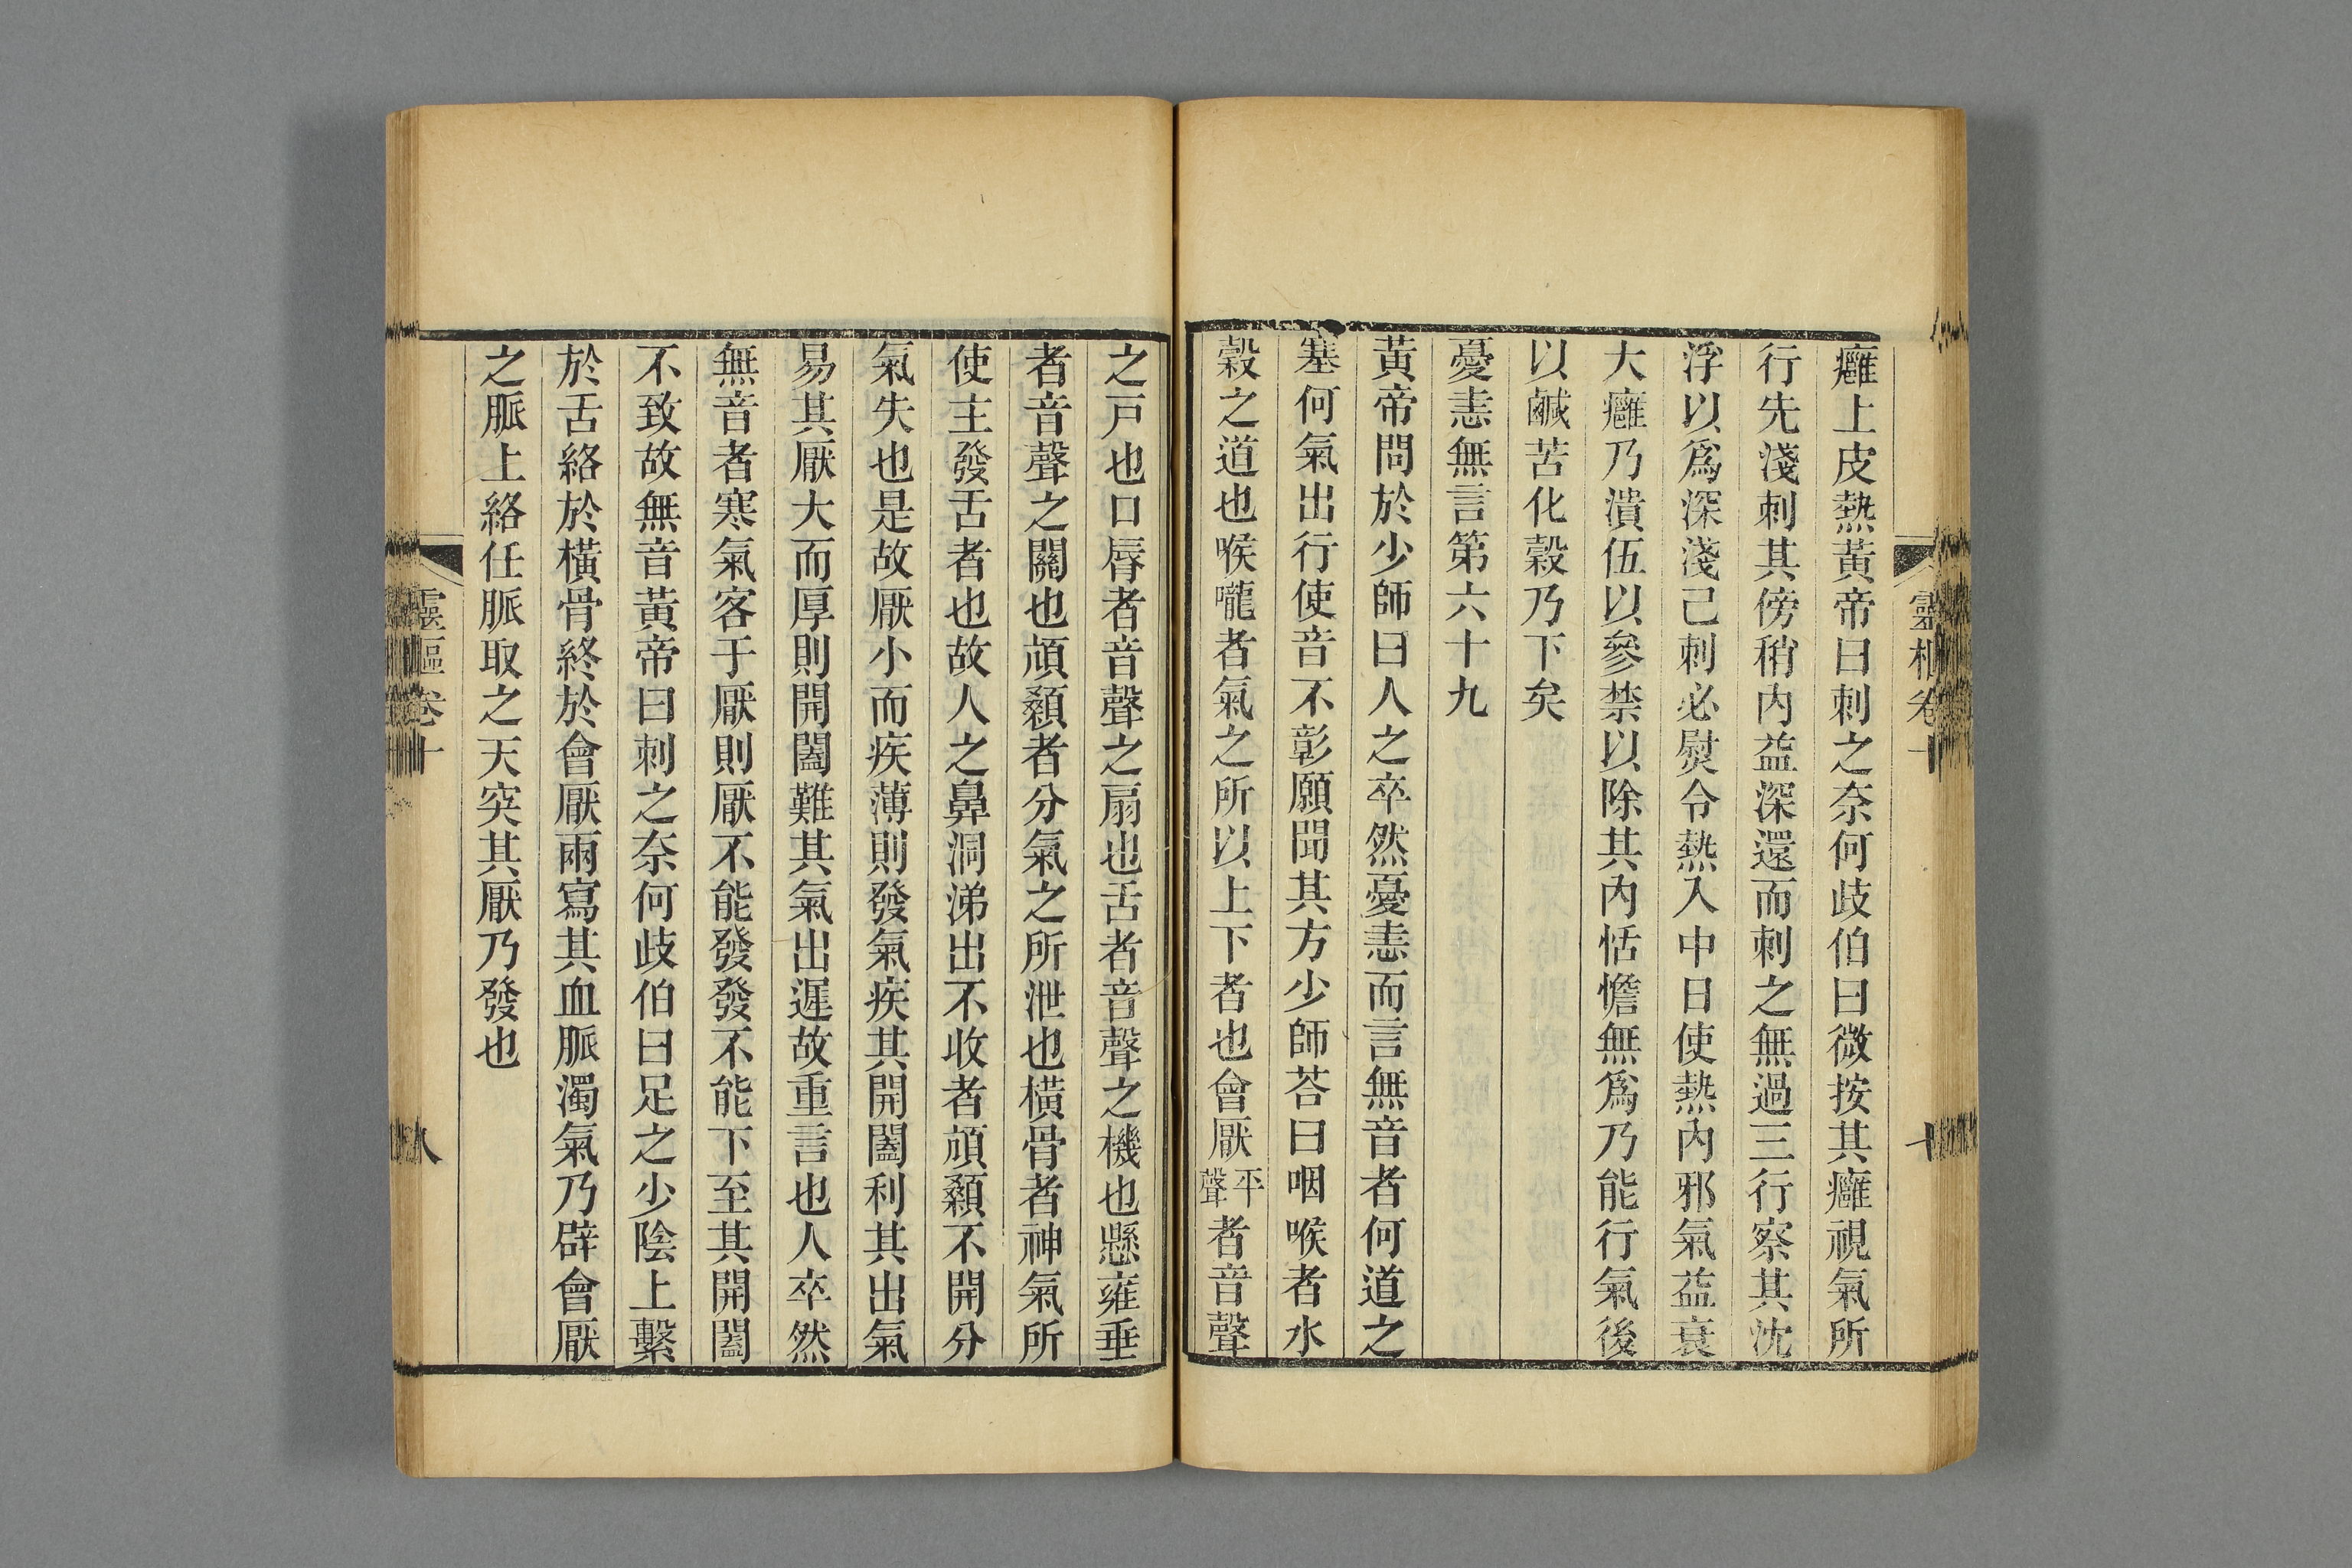 癰上皮熱黃帝曰刺之奈何歧伯曰微按其癰視氣所
行先淺刺其傍稍內益深還而刺之無過三行察其沈
浮以爲深淺已刺必熨令熱入中日使熱內邪氣益衰
大癰乃潰伍以參禁以除其內恬憺無爲乃能行氣後
以鹹苦化穀乃下矣
憂恚無言第六十九
黃帝問於少師曰人之卒然憂恚而言無音者何道之
塞何氣出行使音不彰願聞其方少師荅曰咽喉者水
穀之道也喉嚨者氣之所以上下者也會厭平聲者音聲
之戸也口脣者音聲之扇也舌者音聲之機也懸雍垂
者音聲之關也頏顙者分氣之所泄也橫骨者神氣所
使主發舌者也故人之鼻洞涕出不收者頏顙不開分
氣失也是故厭小而疾薄則發氣疾其開闔利其出氣
易其厭大而厚則開闔難其氣出遲故重言也人卒然
無音者寒氣客于厭則厭不能發發不能下至其開闔
不致故無音黃帝曰刺之奈何歧伯曰足之少陰上繫
於舌絡於橫骨終於會厭兩寫其血脈濁氣乃辟會厭
之脈上絡任脈取之天突其厭乃發也
靈樞卷十
八